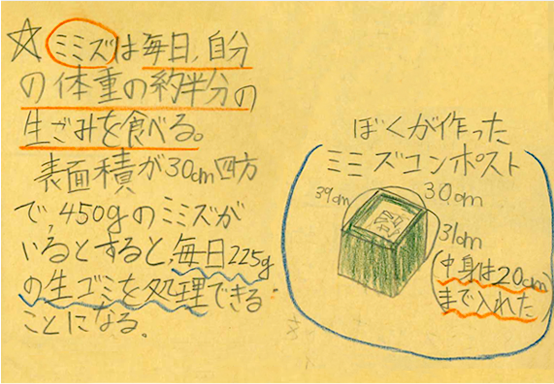 ☆ミミズは毎日、自分
の体重の約半分の
生ざみを食べる。
表面積が30cm四方
で、450gのミミズが
いるとすると、毎日225g
の生ゴミを処理できる
ことになる。
ぼくが作った
ミミズコンポスト
39cm
30cm
31cm
(中身は20cm
まで入れた)